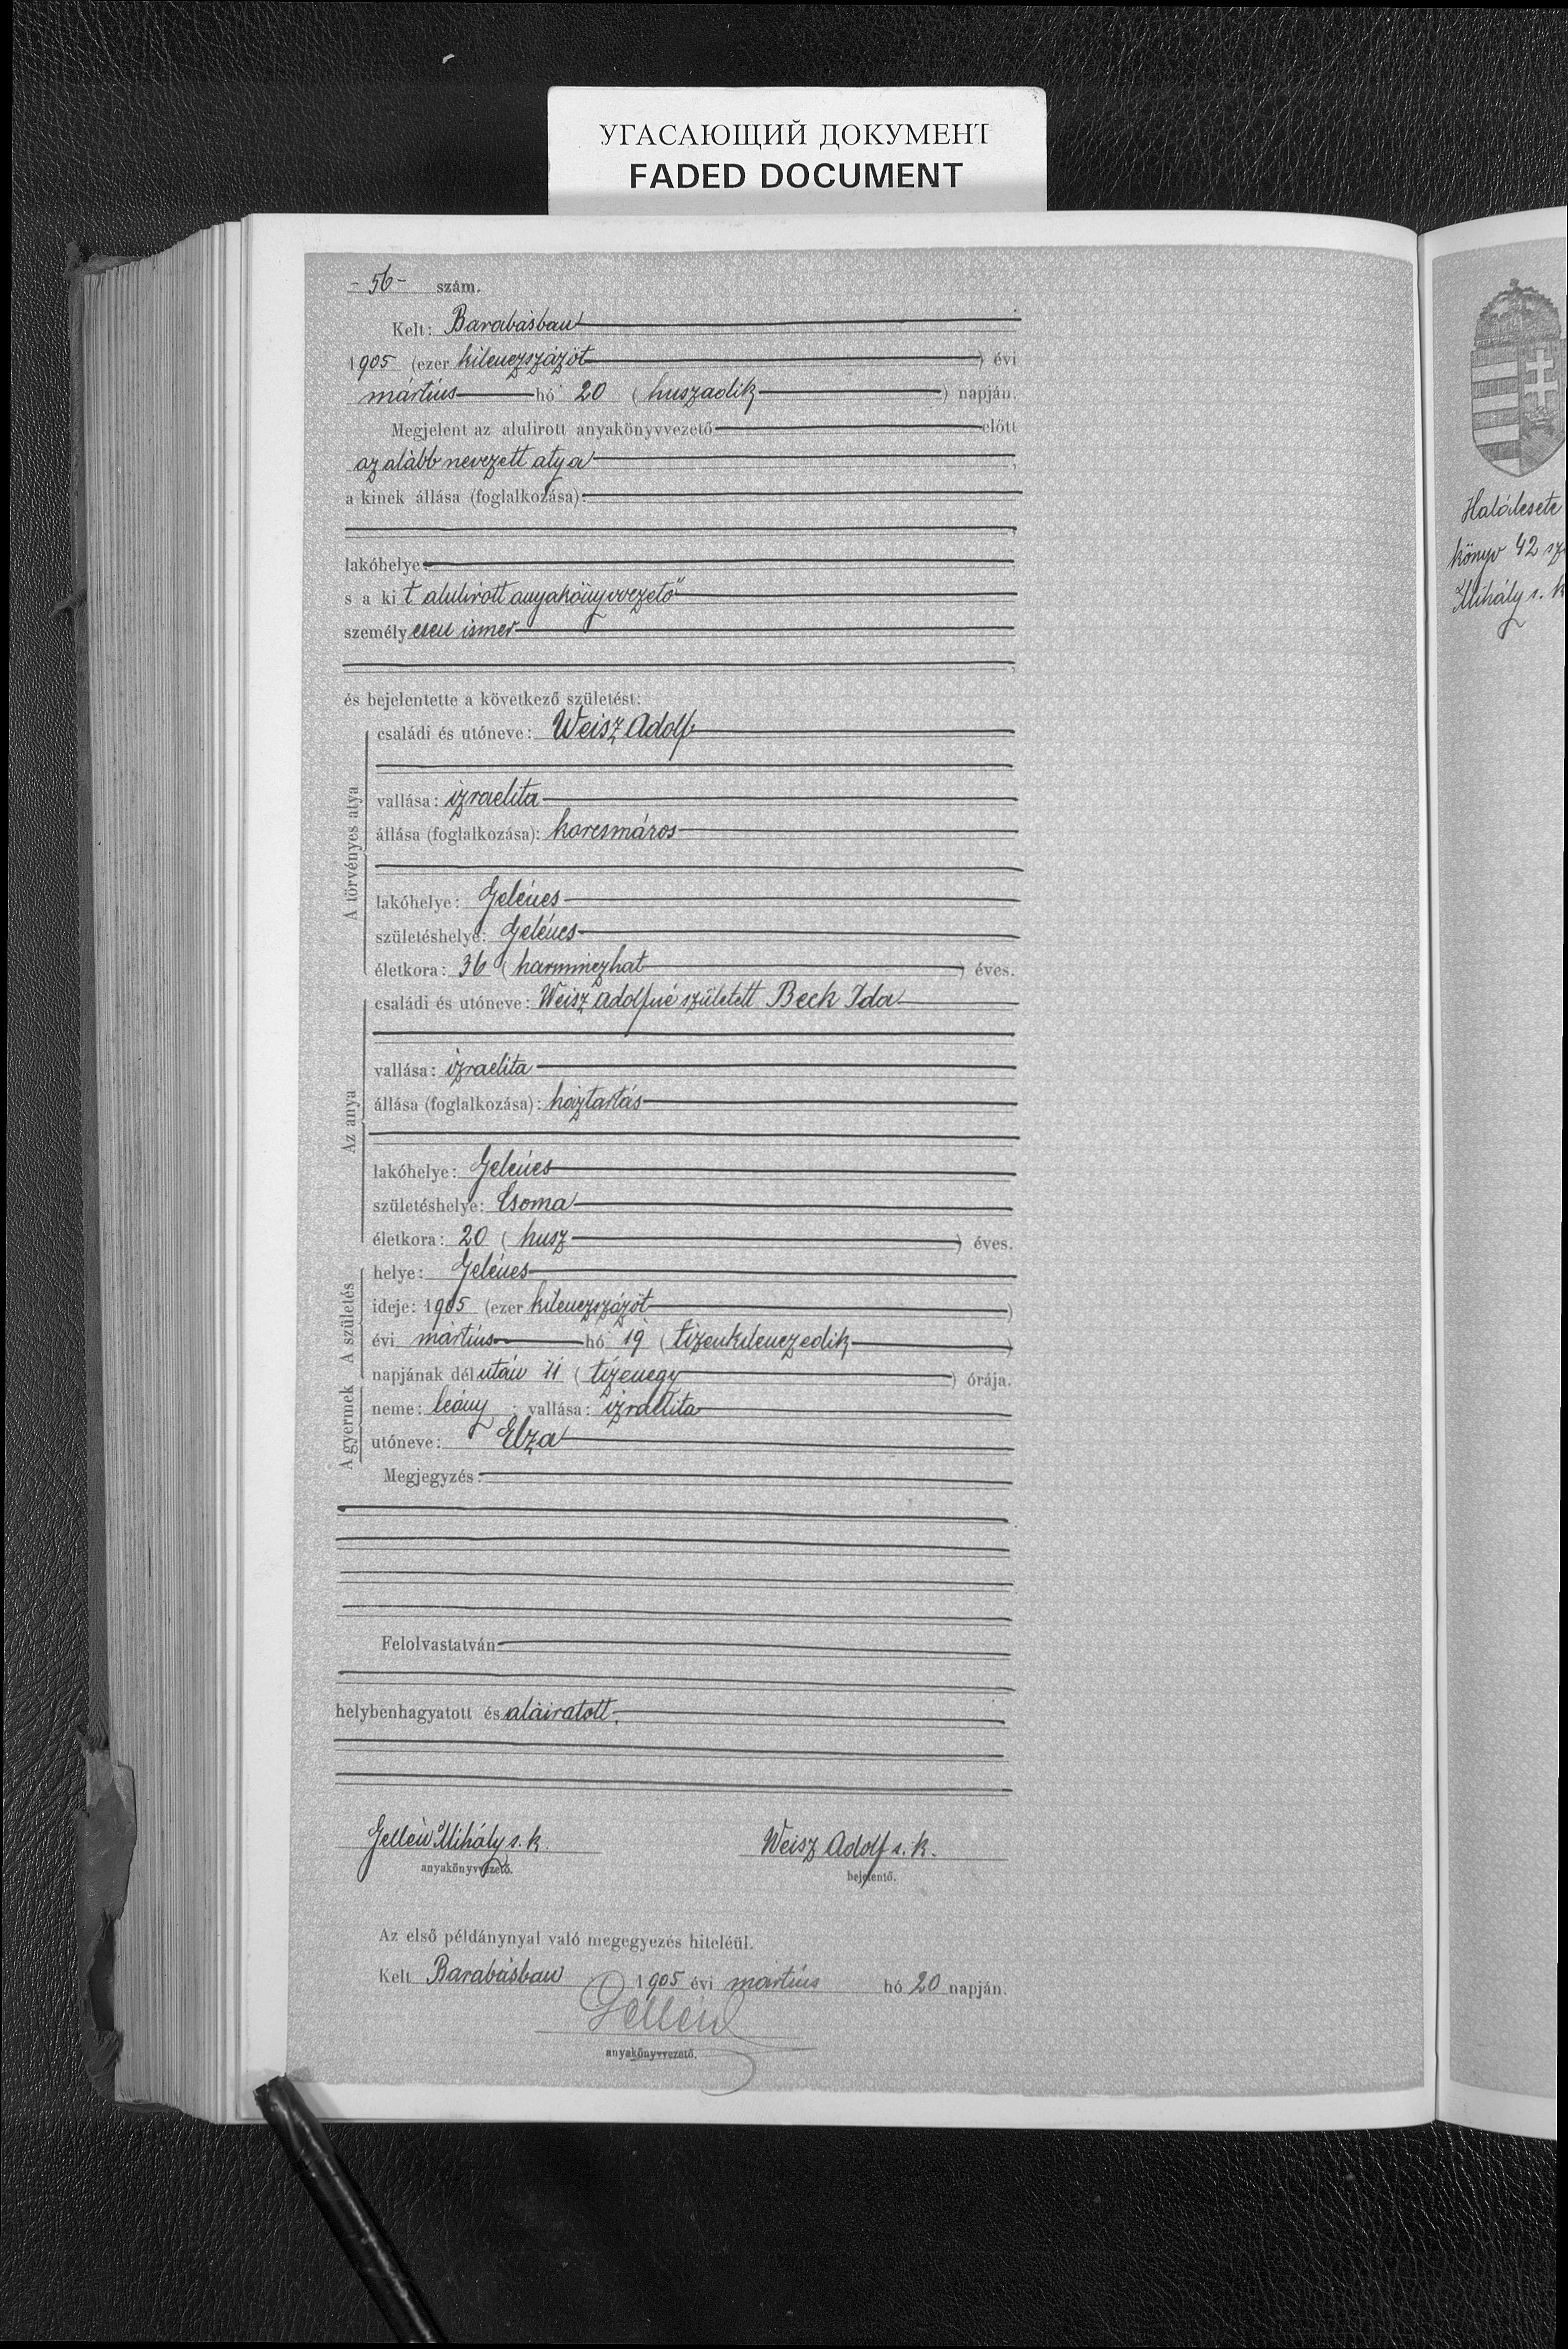 УГАСАЮЩИЙ ДОКУМЕНТ
FADED DOCUMENT
- 56 - szám.
Kelt: Barabásban
1905 (ezer kilenczszázöt) évi
mártius hó 20 (huszadik) napján.
Megjelent az alulirott anyakönyvvezető előtt
az alább nevezett atya,
a kinek állása (foglalkozása):
lakóhelye:
s a kit alulirott anyakönyvvezető
személyesen ismer
és bejelentette a következő születést:
A törvényes atya
családi és utóneve: Weisz Adolf
vallása: izraelita
állása (foglalkozása): korcsmáros
lakóhelye: Gelénes
születéshelye: Gelénes
életkora: 36 (harminczhat) éves.
Az anya
családi és utóneve: Weisz Adolfné született Beck Ida
vallása: izraelita
állása (foglalkozása): háztartás
lakóhelye: Gelénes
születéshelye: Csoma
életkora: 20 (husz) éves.
A születés
helye: Gelénes
ideje: 1905 (ezer kilenczszázöt)
évi mártius hó 19 (tizenkilenczedik)
napjának délután 11 (tizenegy) órája.
A gyermek
neme: leány; vallása: izraelita
utóneve: Elza
Megjegyzés:
Felolvastatván
helybenhagyatott és aláiratott.
Gellén Mihály s. k. Weisz Adolf s. k.
anyakönyvvezető. bejelentő.
Az első példánynyal való megegyezés hiteléül.
Kelt Barabásban 1905 évi mártius hó 20 napján.
Gellén
anyakönyvvezető.
könyv 42 sz
Mihály s. k